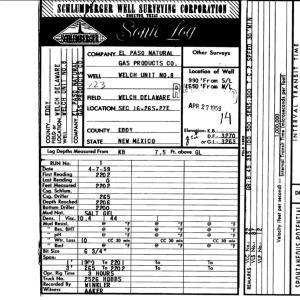 SCHLUMBERGER WELL SURVEYING CORPORATION
HOUSTON, TEXAS
SCHLUMBERGER
Sonic Log
COMPANY EL PASO NATURAL
GAS PRODUCTS CO.
WELL WELCH UNIT NO.8
FIELD WELCH DELAWARE
LOCATION SEC 16-26S-27E
COUNTY EDDY
STATE NEW MEXICO
Other Surveys
Location of Well
990 'From S/L
1650 'From W/L
APR 27 1959
14
Elevation: K.B.
D.F. 3270
or G.L. 3263
COUNTY EDDY
FIELD or LOCATION WELCH DELAWARE
WELL WELCH UNIT NO.8
COMPANY
Log Depths Measured From KB 7.5 Ft. above GL
RUN No.
Date 4-7-59
First Reading 2202
Last Reading 0
Feet Measured 2202
Csg. Schlum.
Csg. Driller 265
Depth Reached 2206
Bottom Driller 2200
Mud Nat. SALT GEL
Dens. | Visc. 10.4 | 44
Mud Resist. @ °F @ °F @ °F
" Res. BHT @ °F @ °F @ °F
" pH @ °F @ °F @ °F
" Wtr. Loss 10 CC 30 min CC 30 min CC 30 min
" Rmf @ °F @ °F @ °F
Bit Size 6 3/4"
Spans:
1' to 2201 to to
3' 265 to 2202 to to
Opr. Rig Time 3 HOURS
Truck No. 2526 HOBBS
Recorded By WINKLER
Witness AAKER
REMARKS
1,000,000
Velocity (feet per second) = Interval Transit Time (microseconds per foot)
INTERVAL TRANSIT TIME
SPONTANEOUS POTENTIAL